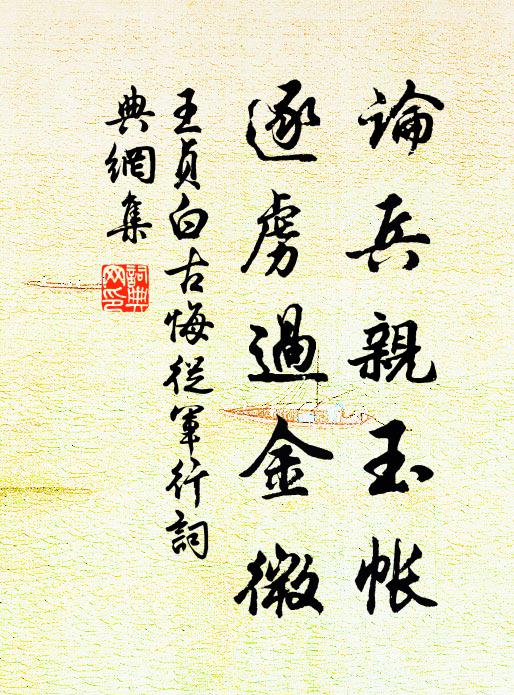 論兵親玉帐
逐虜過金微
王貞白古悔從軍行詞
典網集
詞典网印